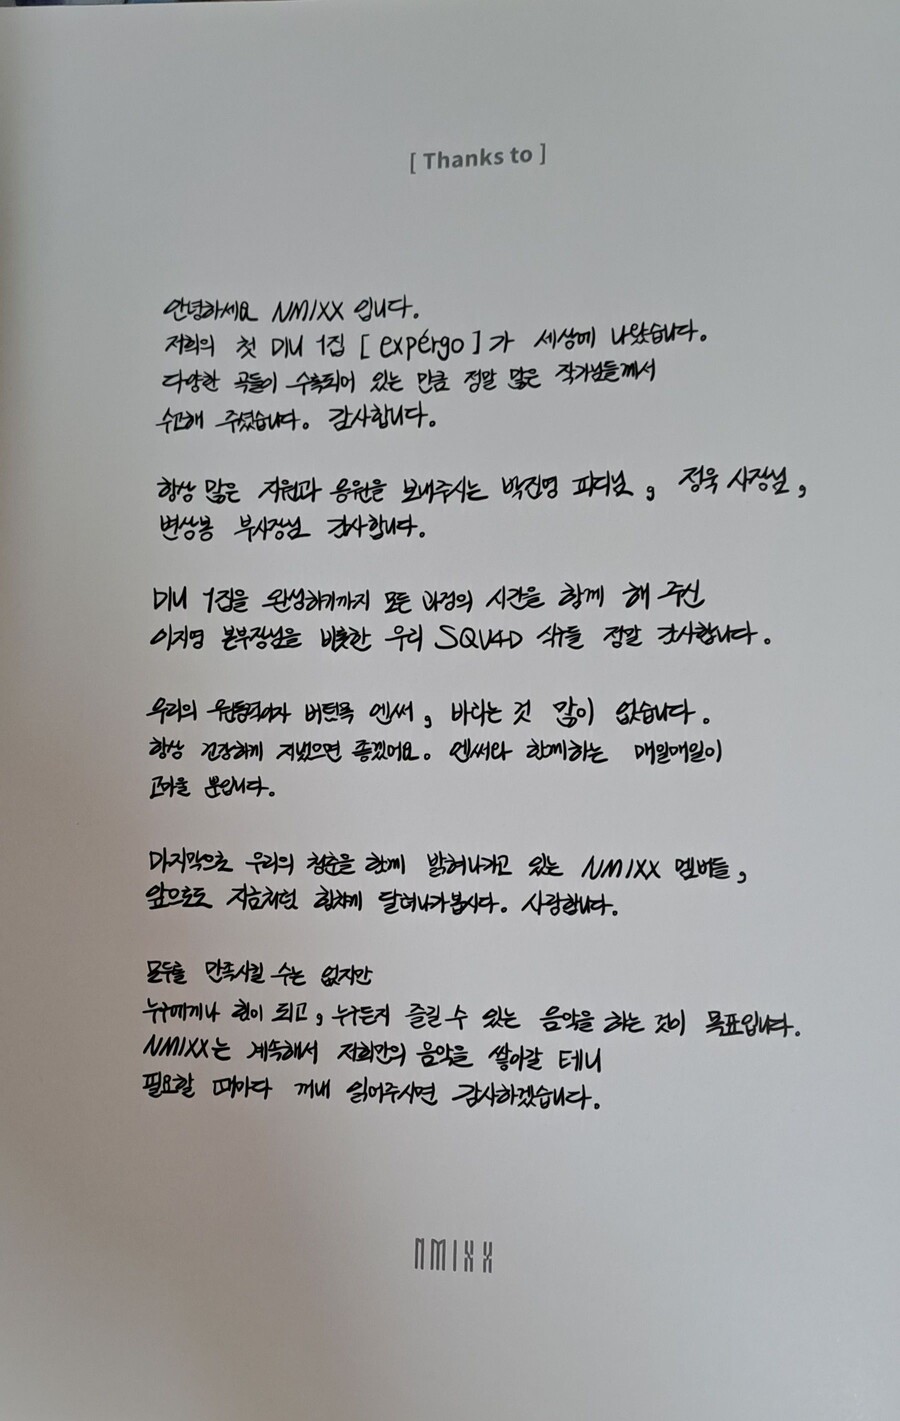 [ Thanks to ]
안녕하세요 NMIXX 입니다.
저희의 첫 미니 1집 [ expérgo ] 가 세상에 나왔습니다.
다양한 곡들이 수록되어 있는 만큼 정말 많은 작가님들께서
수고해 주셨습니다. 감사합니다.
항상 많은 지원과 응원을 보내주시는 박진영 피디님, 정욱 사장님,
변상봉 부사장님 감사합니다.
미니 1집을 완성하기까지 모든 과정의 시간을 함께 해 주신
이지영 본부장님을 비롯한 우리 SQU4D 식구들 정말 감사합니다.
우리의 원동력이자 버팀목 엔써, 바라는 것 많이 없습니다.
항상 건강하게 지냈으면 좋겠어요. 엔써와 함께하는 매일매일이
고마울 뿐입니다.
마지막으로 우리의 청춘을 함께 밝혀나가고 있는 NMIXX 멤버들,
앞으로도 지금처럼 힘차게 달려나가봅시다. 사랑합니다.
모두를 만족시킬 수는 없지만
누구에게나 힘이 되고, 누구든지 즐길 수 있는 음악을 하는 것이 목표입니다.
NMIXX는 계속해서 저희만의 음악을 쌓아갈 테니
필요할 때마다 꺼내 읽어주시면 감사하겠습니다.
NMIXX